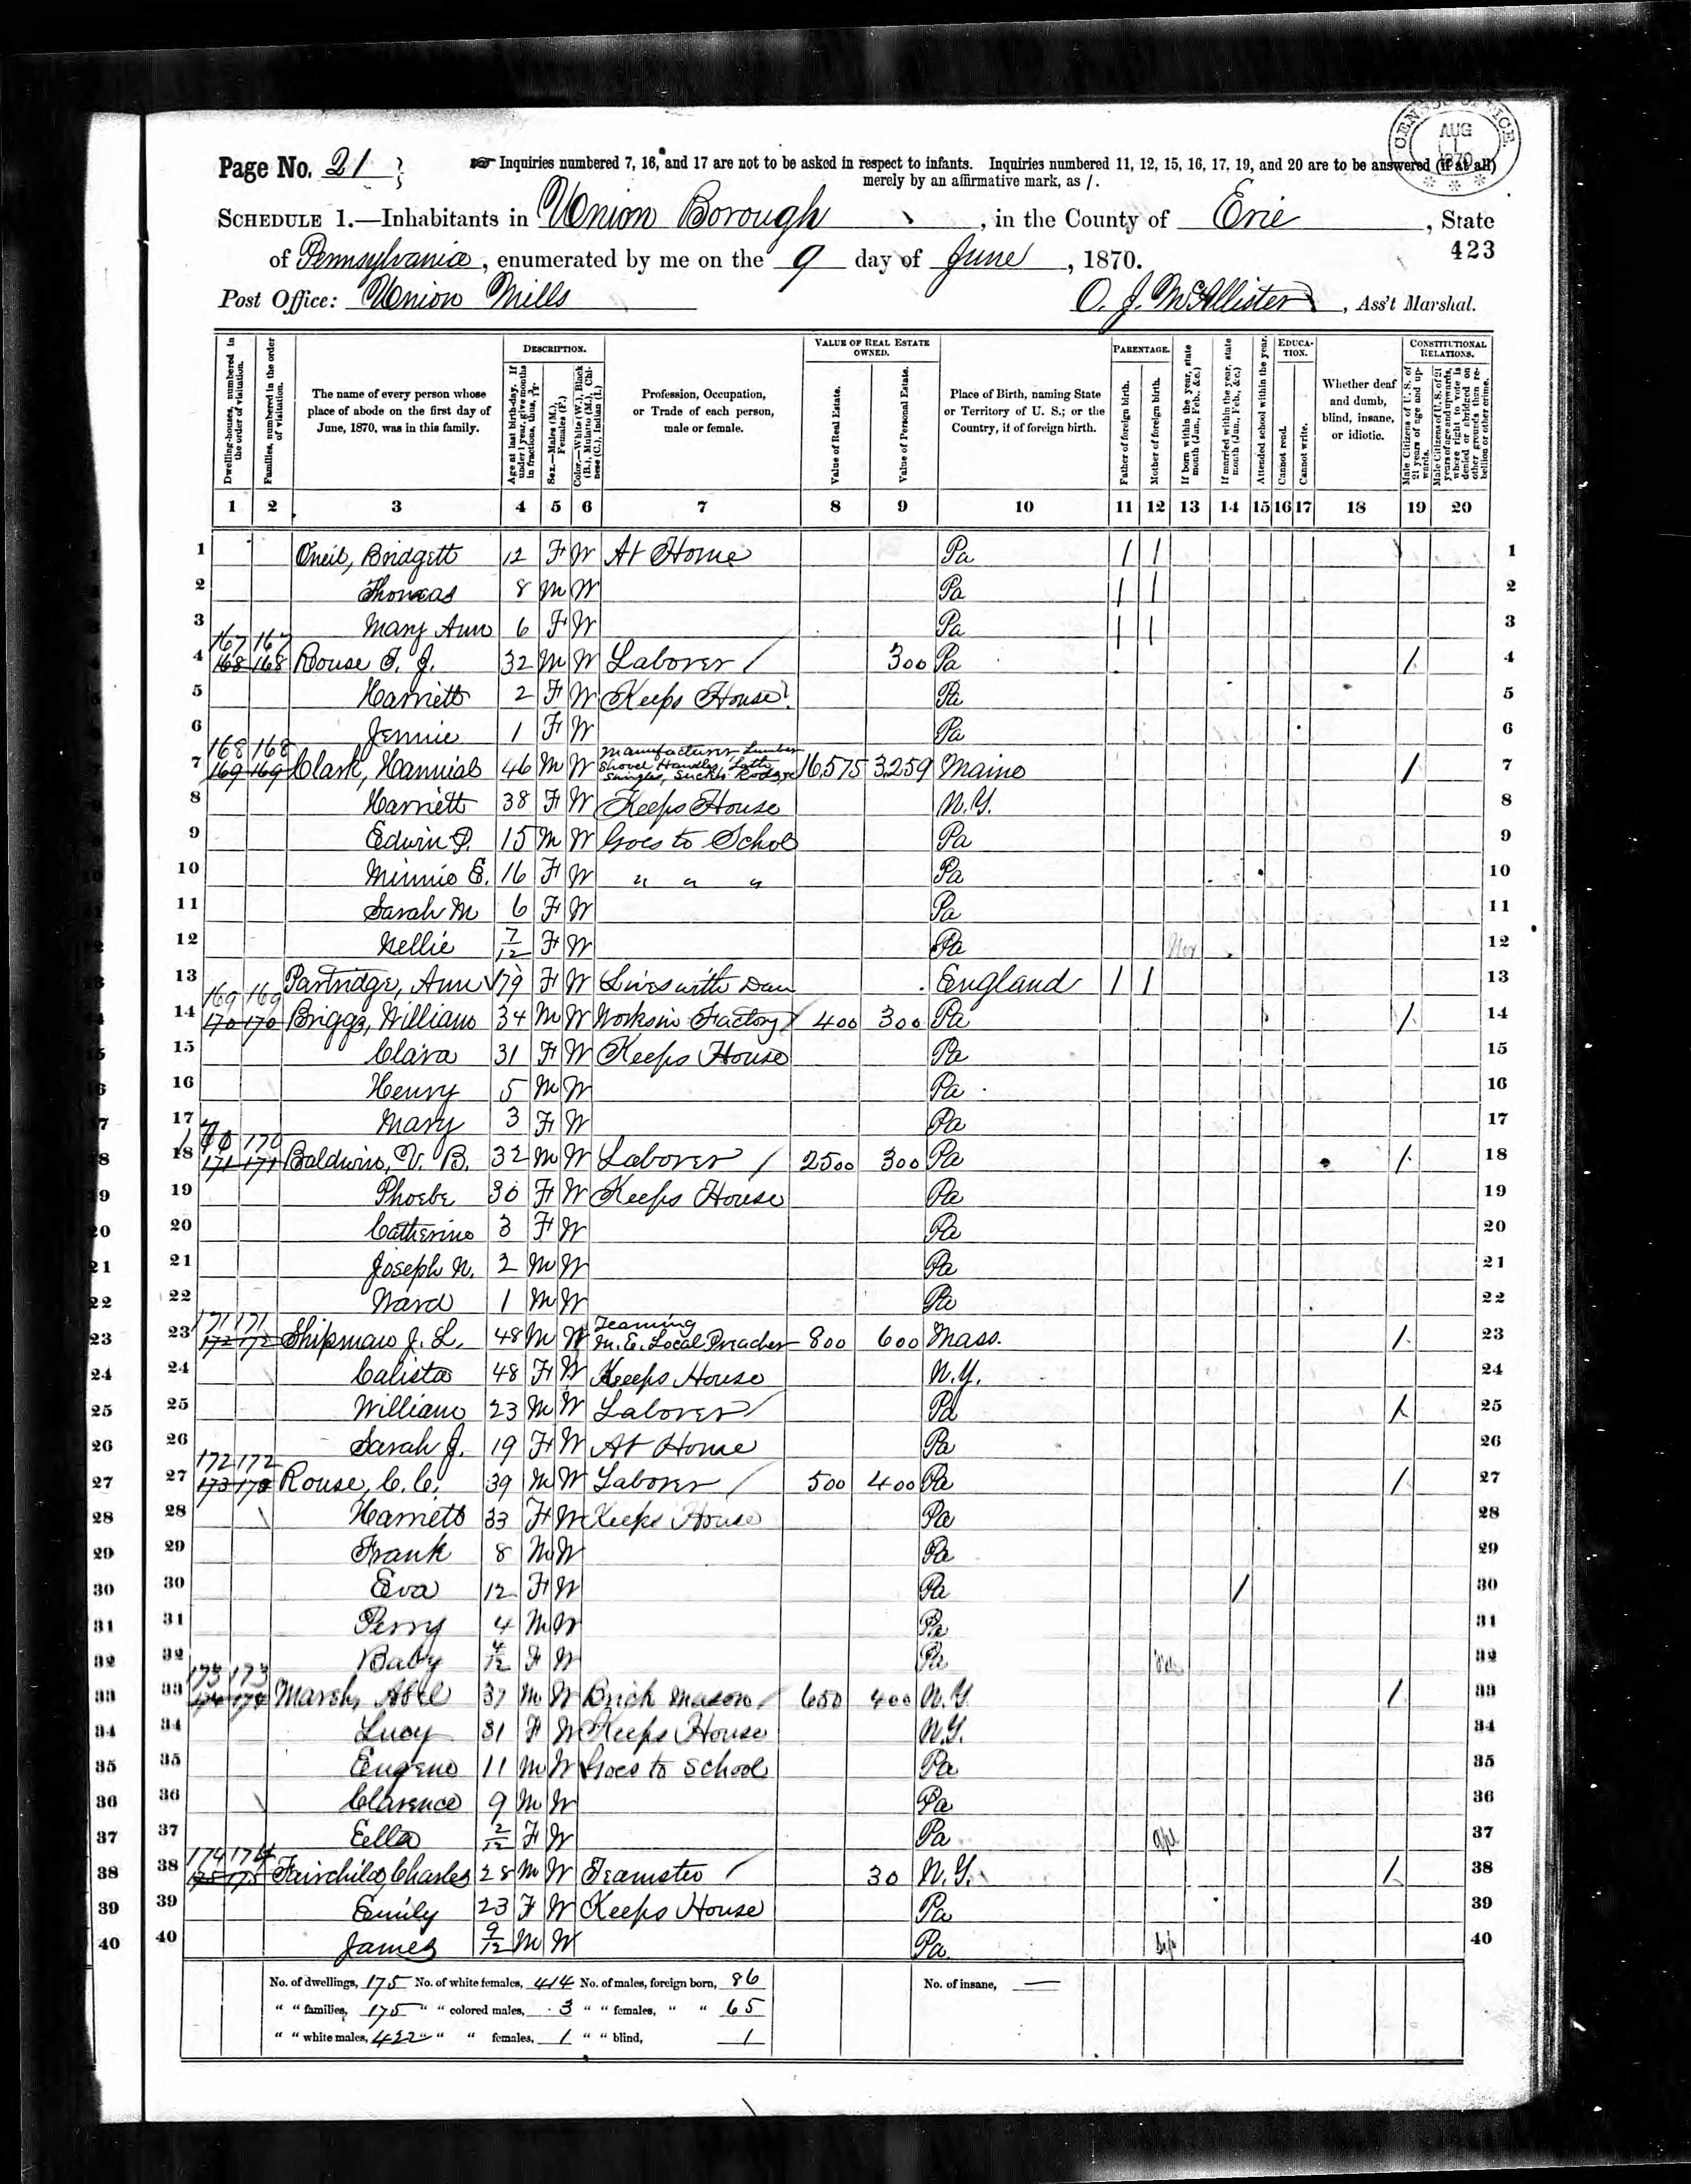 CENSUS OFFICE AUG 1 1870
Page No. 21
Inquiries numbered 7, 16, and 17 are not to be asked in respect to infants. Inquiries numbered 11, 12, 15, 16, 17, 19, and 20 are to be answered (if at all)
merely by an affirmative mark, as /.
SCHEDULE 1.—Inhabitants in Union Borough, in the County of Erie, State
of Pennsylvania, enumerated by me on the 9 day of June, 1870.
423
Post Office: Union Mills
O. J. McAllister, Ass't Marshal.
Dwelling-houses, numbered in the order of visitation.
Families, numbered in the order of visitation.
The name of every person whose place of abode on the first day of June, 1870, was in this family.
DESCRIPTION.
Age at last birth-day. If under 1 year, give months in fractions, thus,
Sex.—Males (M.), Females (F.)
Color.—White (W.), Black (B.), Mulatto (M.), Chinese (C.), Indian (I.)
Profession, Occupation, or Trade of each person, male or female.
VALUE OF REAL ESTATE OWNED.
Value of Real Estate.
Value of Personal Estate.
Place of Birth, naming State or Territory of U. S.; or the Country, if of foreign birth.
PARENTAGE.
Father of foreign birth.
Mother of foreign birth.
If born within the year, state month (Jan., Feb., &c.)
If married within the year, state month (Jan., Feb., &c.)
Attended school within the year.
EDUCATION.
Cannot read.
Cannot write.
Whether deaf and dumb, blind, insane, or idiotic.
CONSTITUTIONAL RELATIONS.
Male Citizens of U. S. of 21 years of age and upwards.
Male Citizens of U. S. of 21 years of age and upwards, where right to vote is denied or abridged on other grounds than rebellion or other crime.
1 2 3 4 5 6 7 8 9 10 11 12 13 14 15 16 17 18 19 20
1 Oneil, Bridgett 12 F W At Home Pa / / 1
2 Thomas 8 M W Pa / / 2
3 Mary Ann 6 F W Pa / / 3
167 167
4 168 168 Rouse 32 M W Laborer / 300 Pa / 4
5 Harriett 2 F W Keeps House Pa 5
6 Jennie 1 F W Pa 6
168 168
7 169 169 Clark, Hannial 46 M W Manufacturer Lumber Shovel Handles, Lath 16,575 3,259 Maine / 7
8 Harriett 38 F W Keeps House N.Y. 8
9 Edwin P. 15 M W Goes to School Pa 9
10 Minnie E. 16 F W " " " Pa 10
11 Sarah M 6 F W Pa 11
12 Nellie 7/12 F W Pa Nov 12
13 Partridge, Ann 79 F W Lives with Dau England / / 13
169 169
14 170 170 Briggs, William 34 M W Works in Factory / 400 300 Pa / 14
15 Clara 31 F W Keeps House Pa 15
16 Henry 5 M W Pa 16
17 Mary 3 F W Pa 17
170 170
18 171 171 Baldwin, V. B. 32 M W Laborer / 2500 300 Pa / 18
19 Phoebe 30 F W Keeps House Pa 19
20 Catherine 3 F W Pa 20
21 Joseph N. 2 M W Pa 21
22 Ward 1 M W Pa 22
171 171
23 172 172 Shipman J. L. 48 M W Teaming M. E. Local Preacher 800 600 Mass. / 23
24 Calista 48 F W Keeps House N.Y. 24
25 William 23 M W Laborer / Pa / 25
26 Sarah J. 19 F W At Home Pa 26
172 172
27 173 173 Rouse, C. C. 39 M W Laborer / 500 400 Pa / 27
28 Harriett 33 F W Keeps House Pa 28
29 Frank 8 M W Pa 29
30 Eva 12 F W Pa / 30
31 Perry 4 M W Pa 31
32 Baby 4/12 F W Pa 32
173 173
33 174 174 Marsh, Abel 37 M W Brick Mason / 650 400 N.Y. / 33
34 Lucy 31 F W Keeps House N.Y. 34
35 Eugene 11 M W Goes to School Pa 35
36 Clarence 9 M W Pa 36
37 Ella 2/12 F W Pa Apl 37
174 174
38 175 175 Fairchild, Charles 28 M W Teamster / 30 N.Y. / 38
39 Emily 23 F W Keeps House Pa 39
40 James 9/12 M W Pa Sep 40
No. of dwellings, 175 No. of white females, 414 No. of males, foreign born, 86 No. of insane, —
" " families, 175 " " colored males, 3 " " females, " " 65
" " white males, 422 " " " females, 1 " " blind, 1